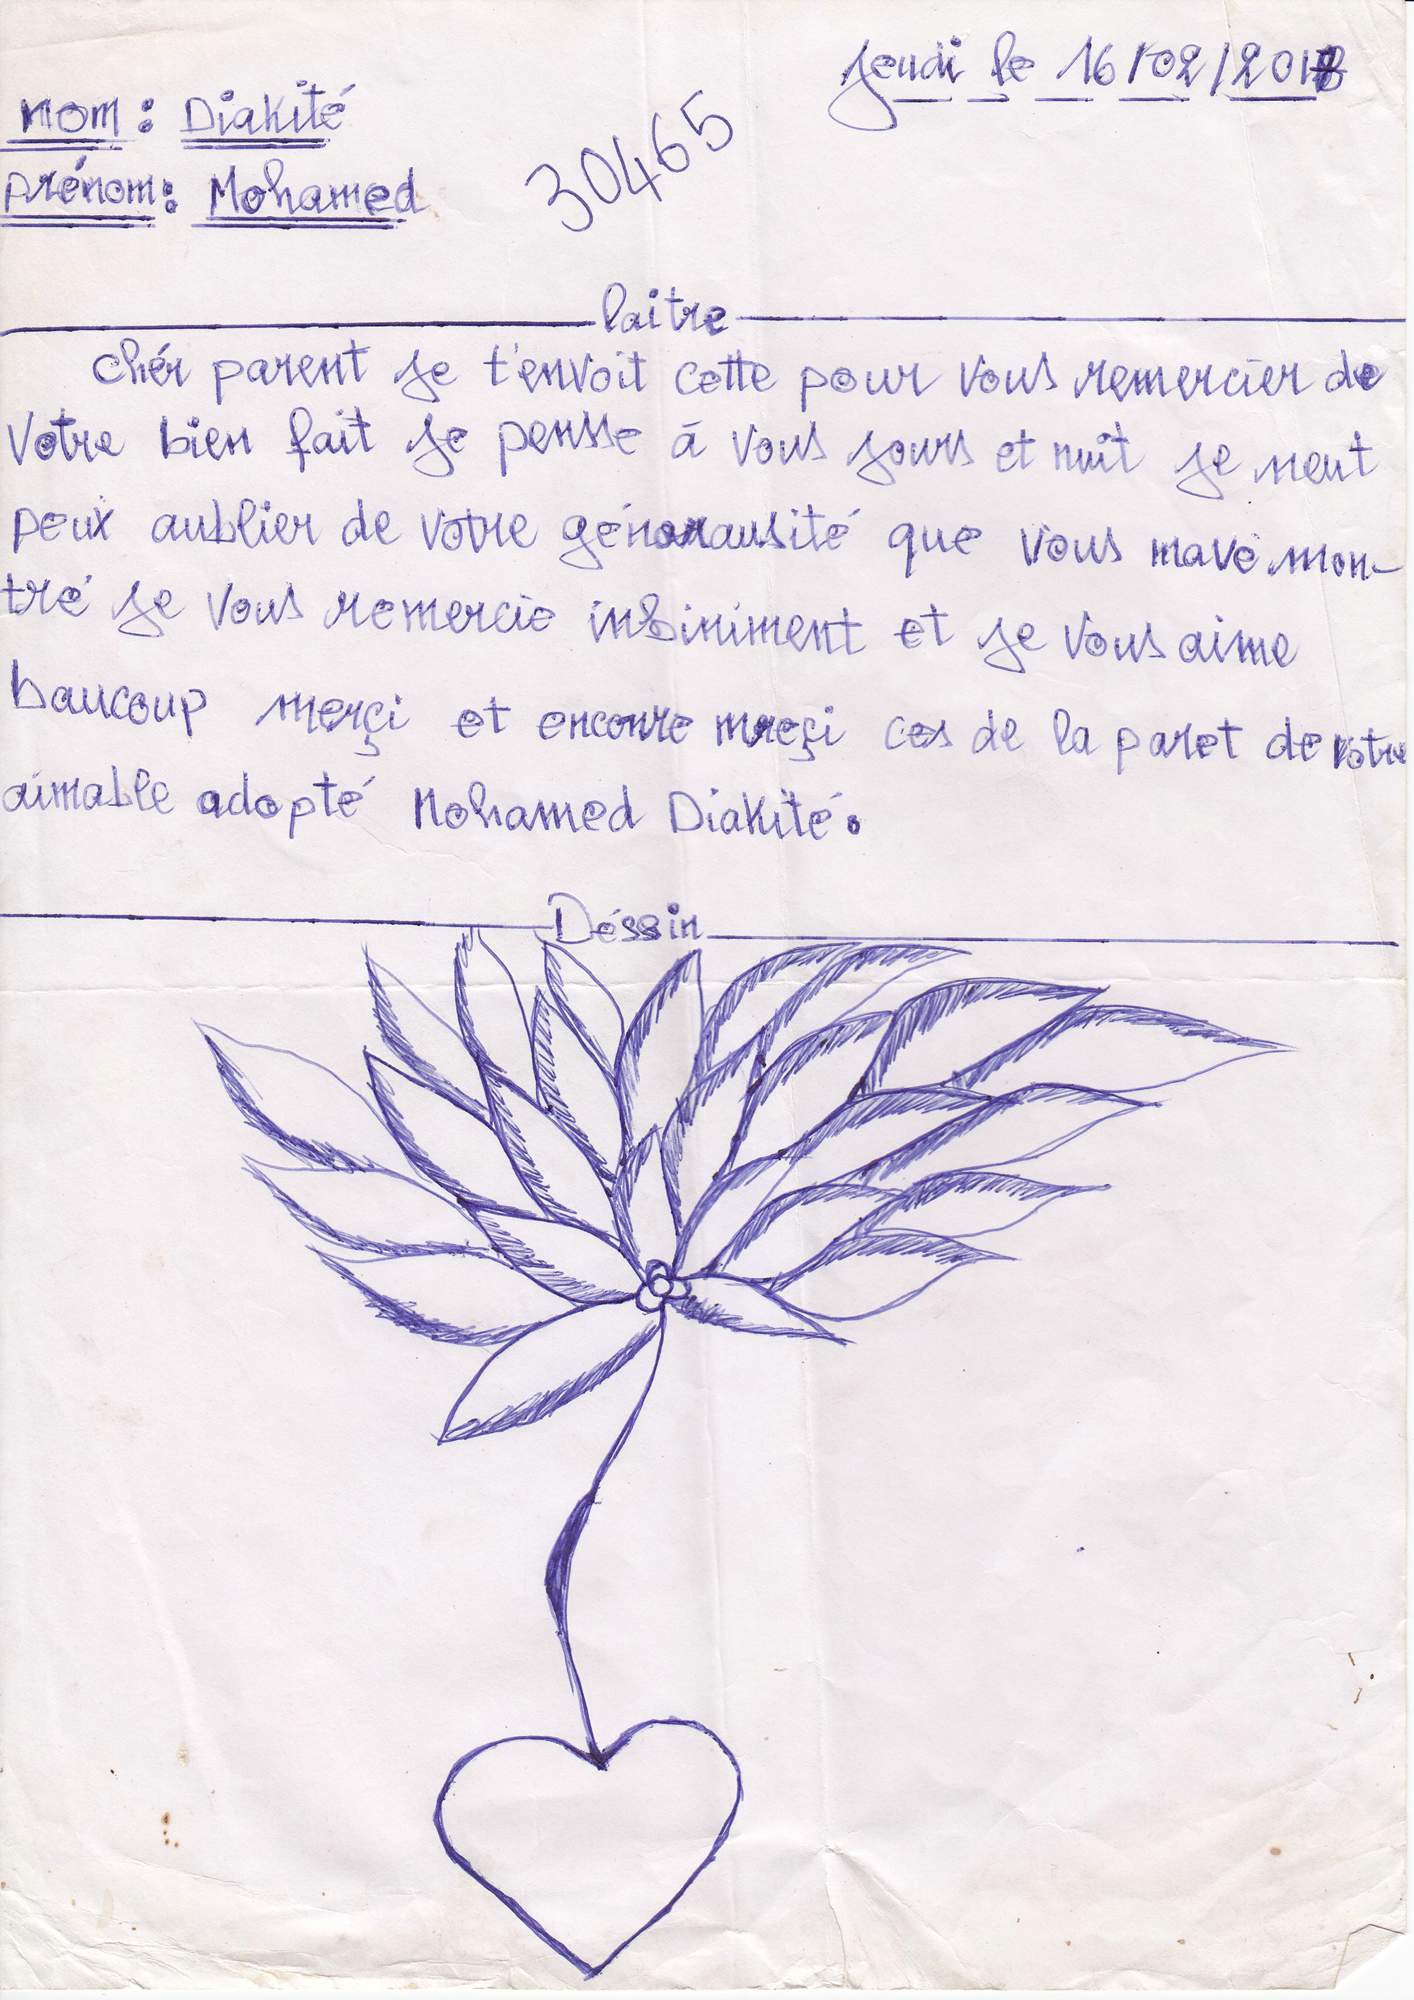 Jeudi le 16/02/2018
nom : Diakité
30465
prénom : Mohamed
laitre
Chér parent je t'envoit cette pour vous remercier de
Votre bien fait je pensse á vous jours et nuit je neut
peux aublier de votre génorausité que vous mavé mon-
tré je vous remercie infiniment et je vous aime
baucoup merçi et enconre mreçi ces de la paret de votre
aimable adopté Mohamed Diakité.
Déssin